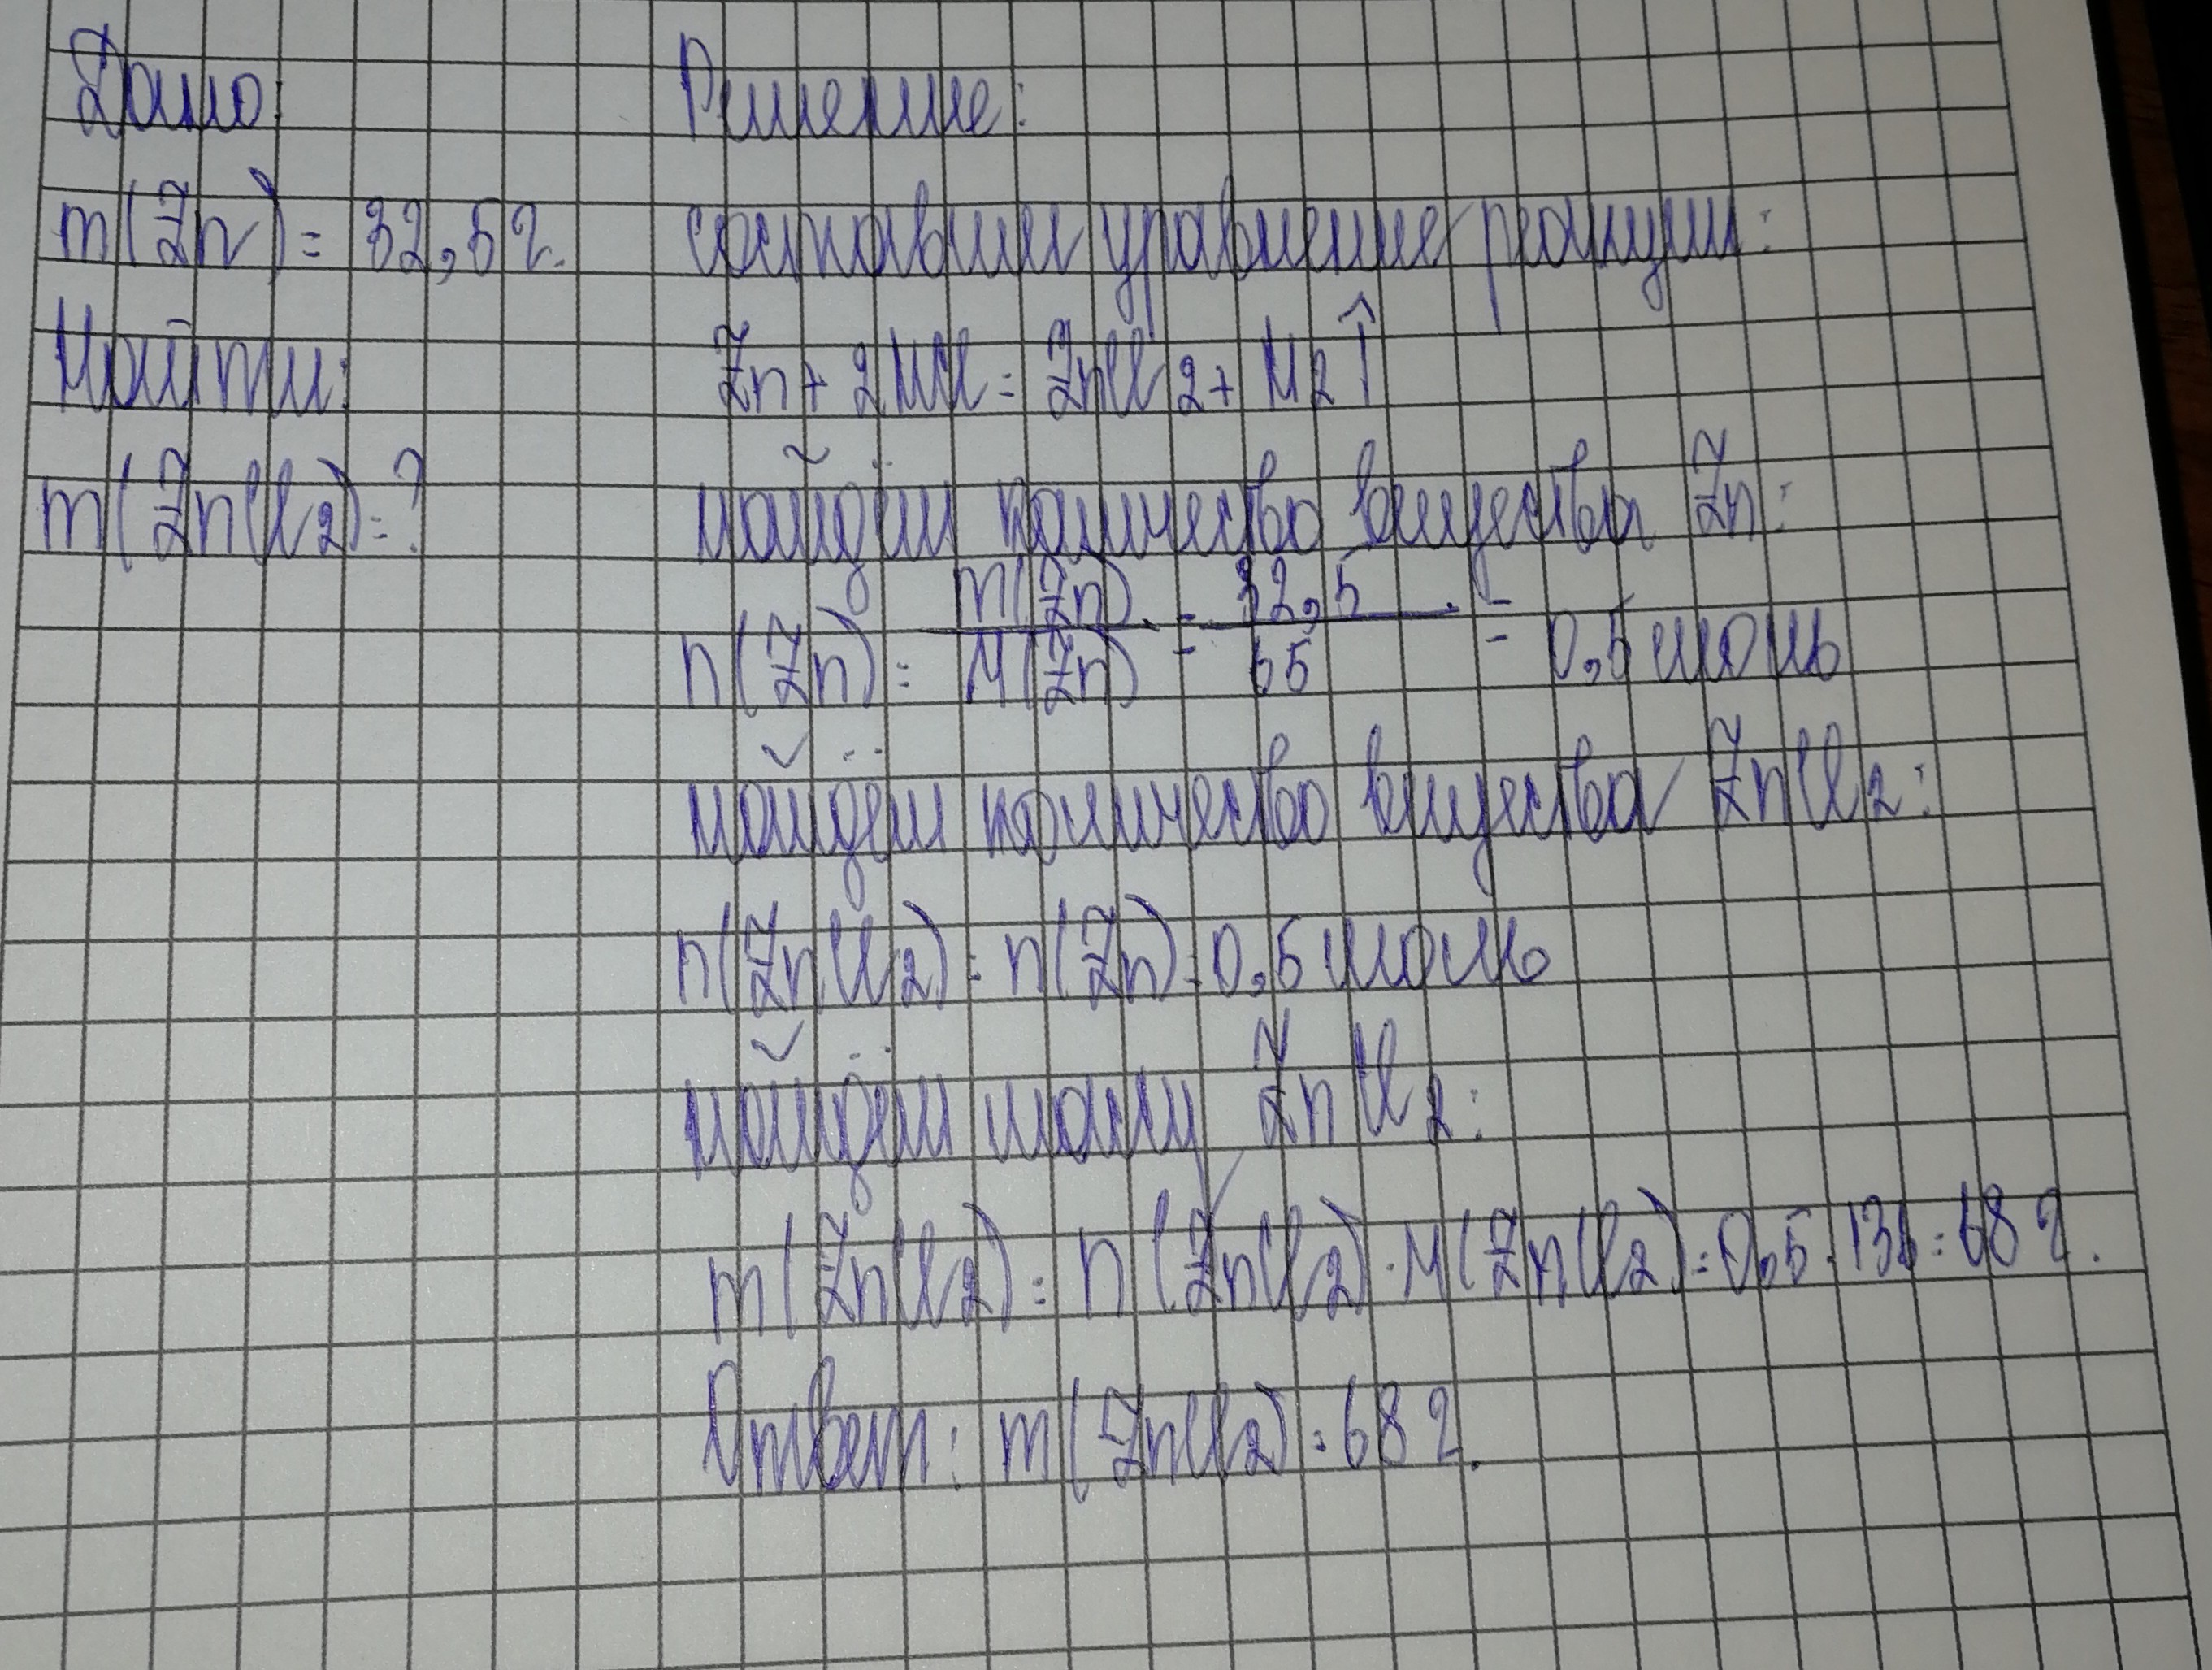 Дано:
m(Zn) = 32,5 г.
Найти:
m(ZnCl2) = ?
Решение:
составим уравнение реакции:
Zn + 2HCl = ZnCl2 + H2↑
найдём количество вещества Zn:
n(Zn) = m(Zn) / M(Zn) = 32,5 / 65 = 0,5 моль
найдём количество вещества ZnCl2:
n(ZnCl2) = n(Zn) = 0,5 моль
найдём массу ZnCl2:
m(ZnCl2) = n(ZnCl2) · M(ZnCl2) = 0,5 · 136 = 68 г.
Ответ: m(ZnCl2) = 68 г.